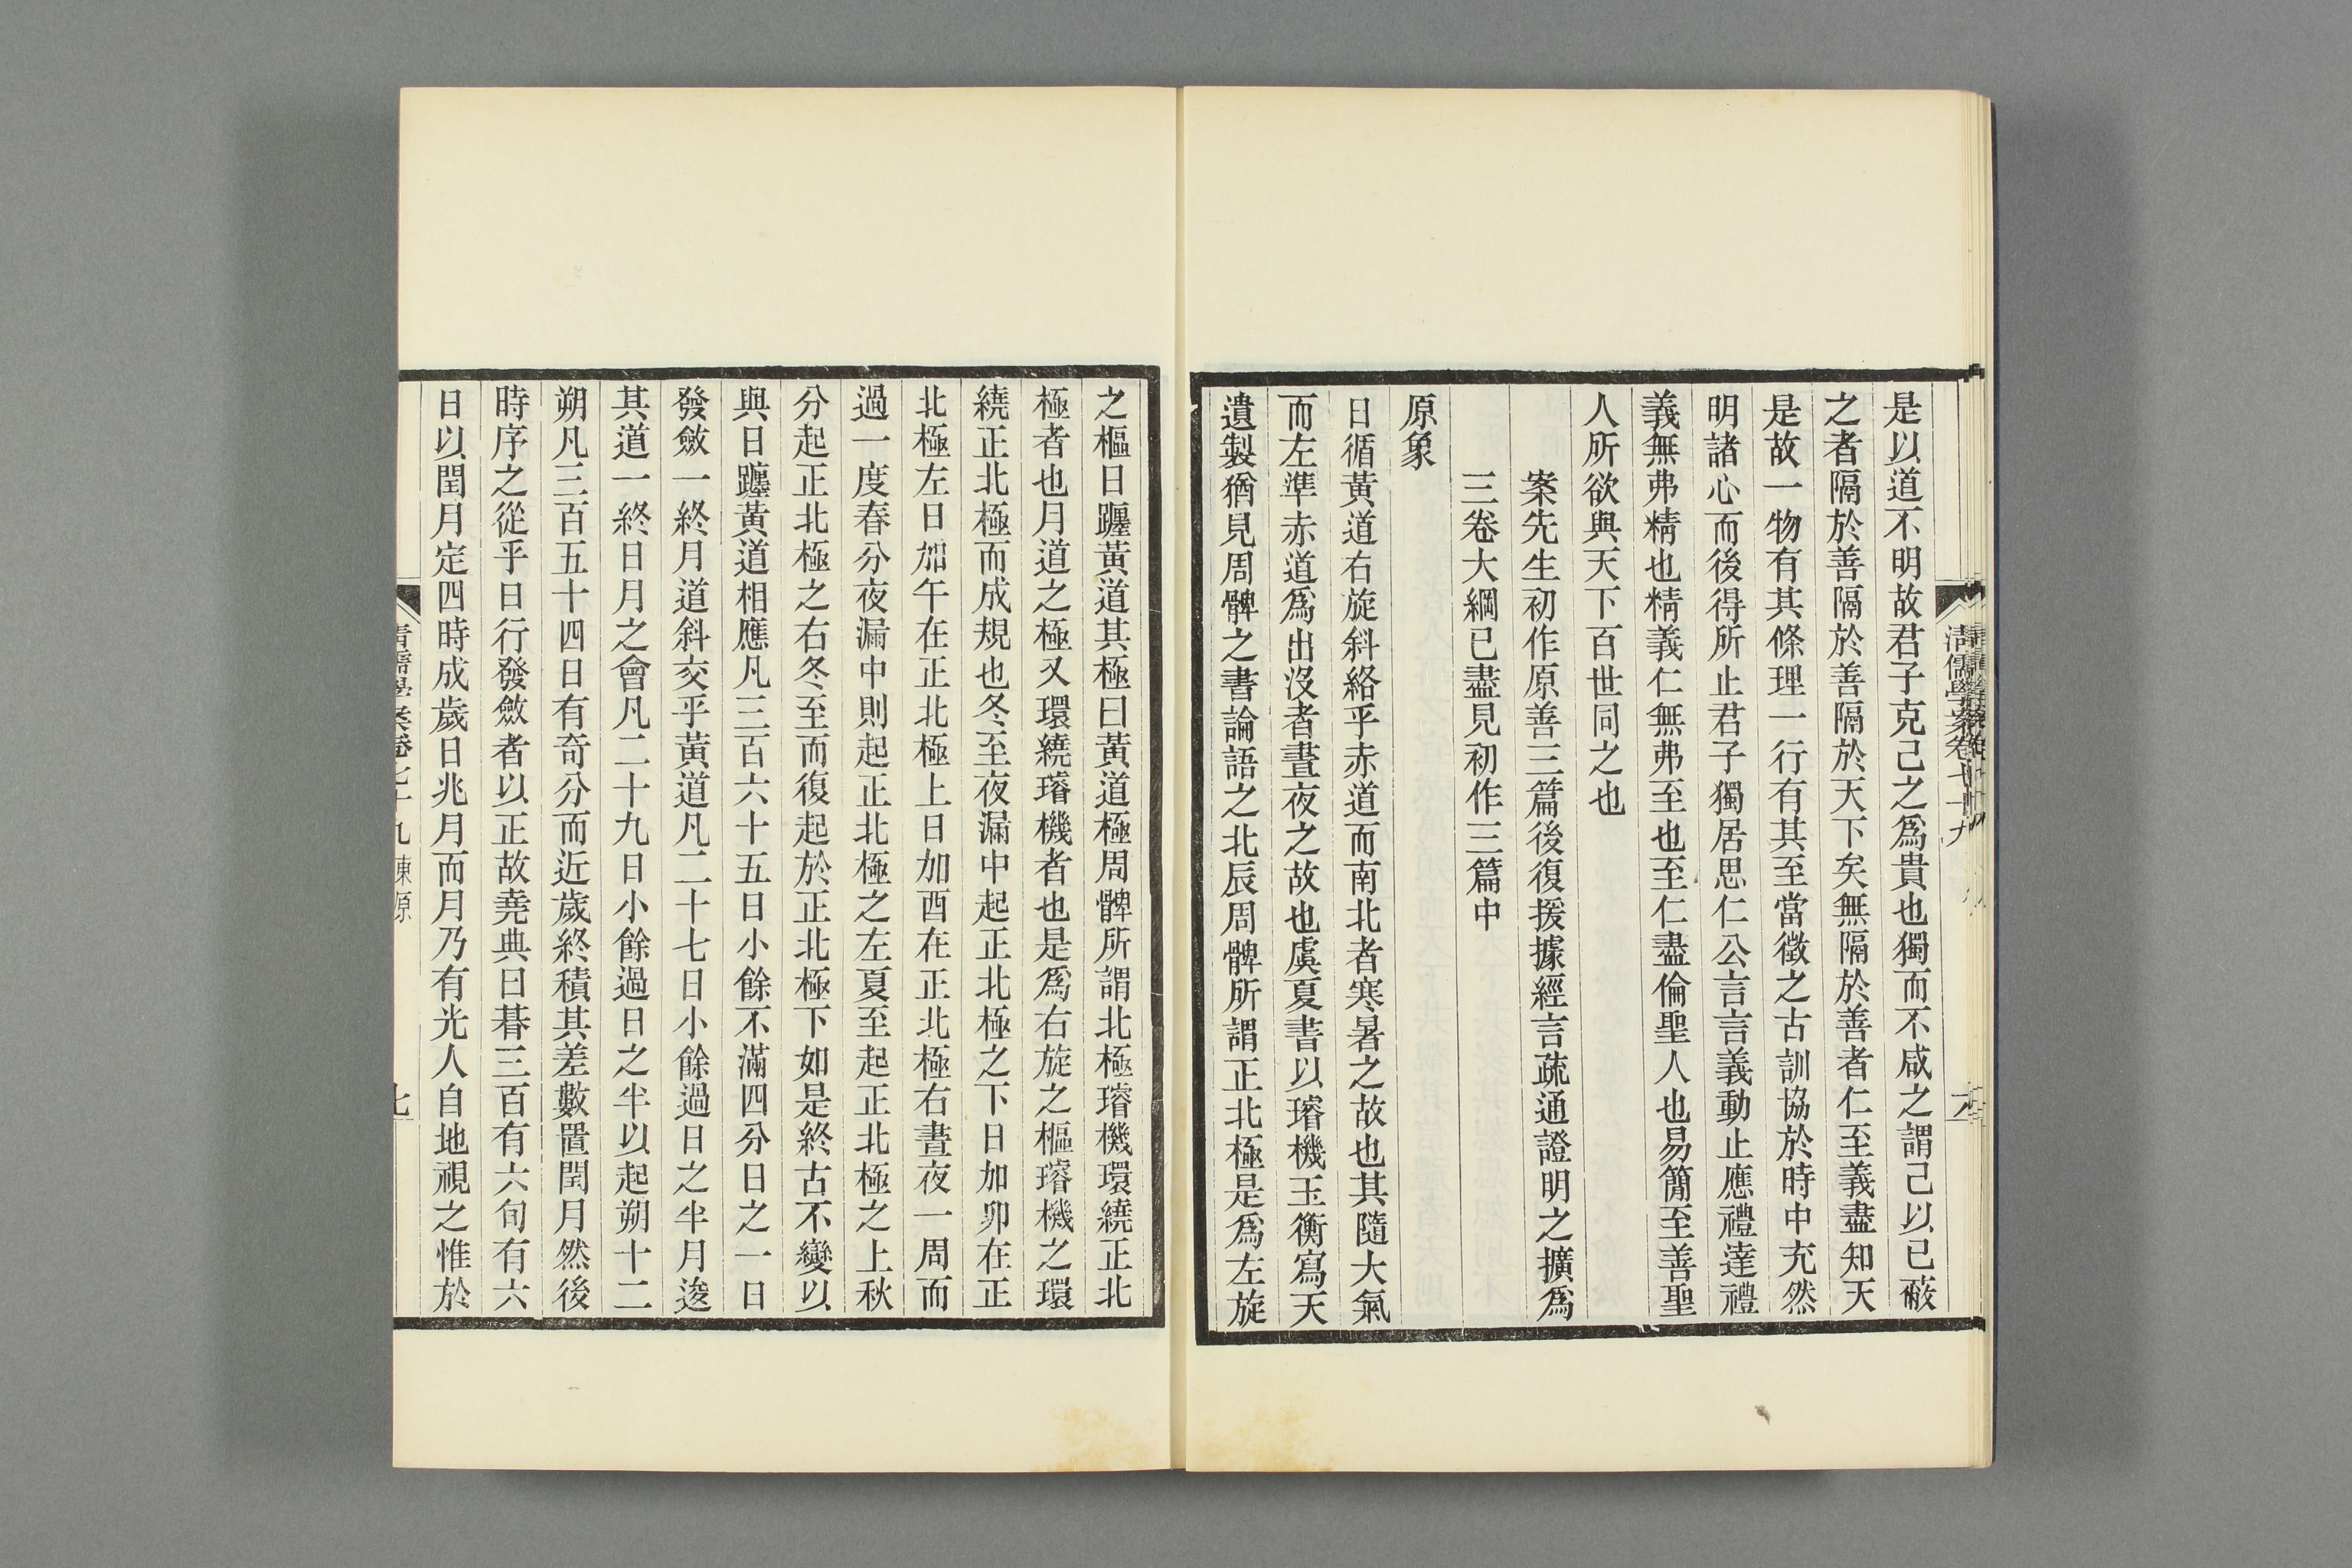 清儒學案卷七十九
是以道不明故君子克己之爲貴也獨而不咸之謂己以已蔽
之者隔於善隔於善隔於天下矣無隔於善者仁至義盡知天
是故一物有其條理一行有其至當徵之古訓協於時中充然
明諸心而後得所止君子獨居思仁公言言義動止應禮達禮
義無弗精也精義仁無弗至也至仁盡倫聖人也易簡至善聖
人所欲與天下百世同之也
案先生初作原善三篇後復援據經言疏通證明之擴爲
三卷大綱已盡見初作三篇中
原象
日循黃道右旋斜絡乎赤道而南北者寒暑之故也其隨大氣
而左準赤道爲出沒者晝夜之故也虞夏書以璿機玉衡寫天
遺製猶見周髀之書論語之北辰周髀所謂正北極是爲左旋
之樞日躔黃道其極曰黃道極周髀所謂北極璿機環繞正北
極者也月道之極又環繞璿機者也是爲右旋之樞璿機之環
繞正北極而成規也冬至夜漏中起正北極之下日加卯在正
北極左日加午在正北極上日加酉在正北極右晝夜一周而
過一度春分夜漏中則起正北極之左夏至起正北極之上秋
分起正北極之右冬至而復起於正北極下如是終古不變以
與日躔黃道相應凡三百六十五日小餘不滿四分日之一日
發斂一終月道斜交乎黃道凡二十七日小餘過日之半月逡
其道一終日月之會凡二十九日小餘過日之半以起朔十二
朔凡三百五十四日有奇分而近歲終積其差數置閏月然後
時序之從乎日行發斂者以正故堯典曰朞三百有六旬有六
日以閏月定四時成歲日兆月而月乃有光人自地視之惟於
清儒學案卷七十九 東原 七